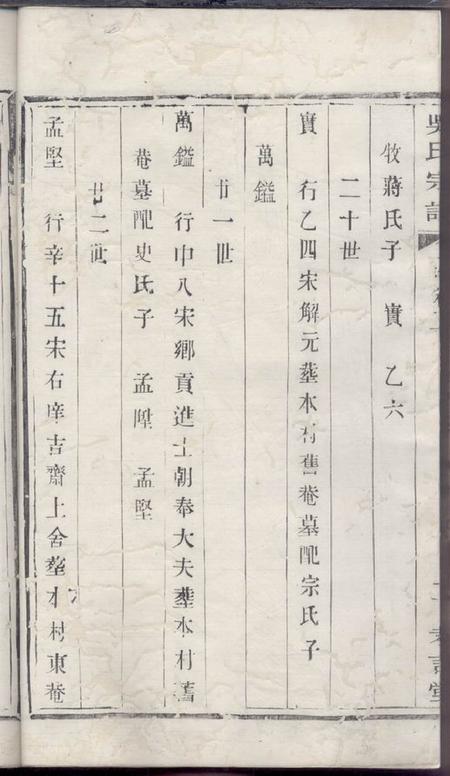 吳氏宗譜
牧蔣氏子 實 乙六
二十世
實 行乙四宋解元塟本村舊菴墓配宗氏子
萬鎰
廿一世
萬鎰 行中八宋鄉貢進士朝奉大夫塟本村舊
菴墓配史氏子 孟陞 孟堅
廿二世
孟堅 行辛十五宋右庠吉齋上舍塟本村東菴